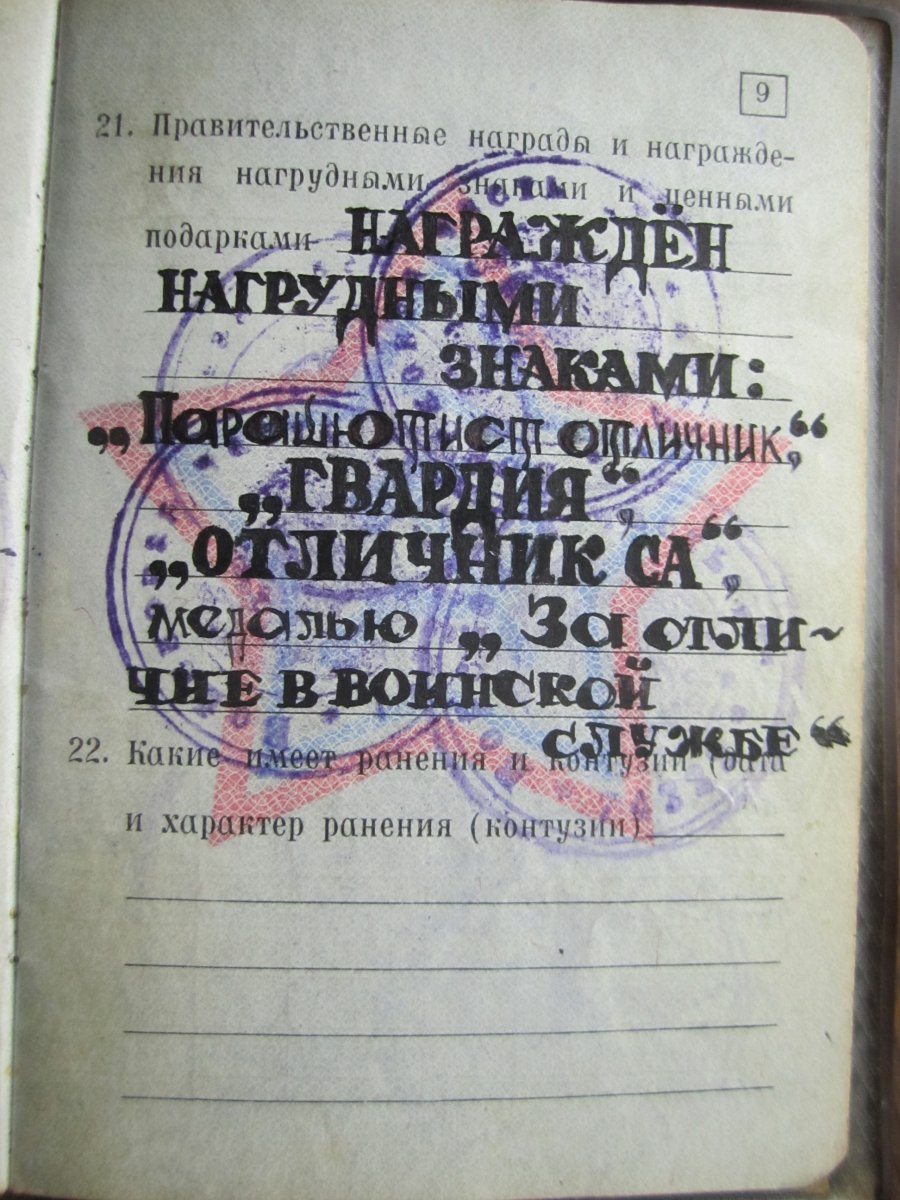 9
21. Правительственные награды и награжде-
ния нагрудными знаками и ценными
подарками НАГРАЖДЁН
НАГРУДНЫМИ
ЗНАКАМИ:
„Парашютист отличник“,
„ГВАРДИЯ“,
„ОТЛИЧНИК СА“,
медалью „За отли-
чие в воинской
службе“
22. Какие имеет ранения и контузии (дата
и характер ранения (контузии)